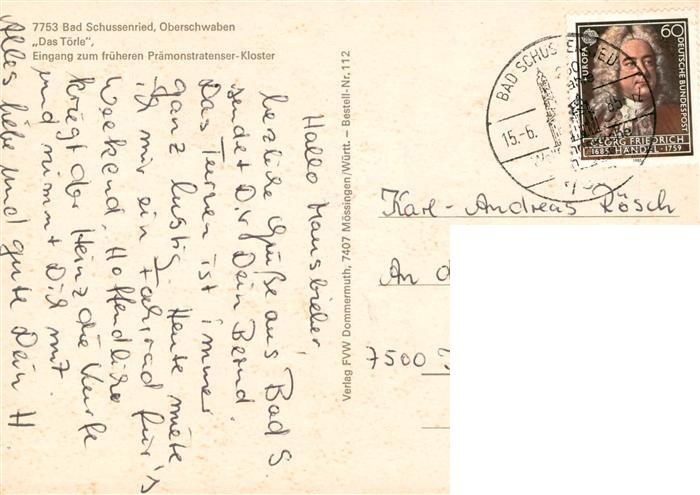 7753 Bad Schussenried, Oberschwaben
„Das Törle",
Eingang zum früheren Prämonstratenser-Kloster
Hallo Mausbieber,
herzliche Grüße aus Bad S.
sendet Dir Dein Bernd.
Das Turnen ist immer
ganz lustig. Heute miete
ich mir ein Fahrrad für's
Weekend. Hoffendlich
kriegt der Heinz die Kurfe
und nimmt Dich mit.
Alles liebe und gute Dein H
Verlag FVW Dommermuth, 7407 Mössingen/Württ. – Bestell-Nr. 112
BAD SCHUSSENRIED
15.-6.
60
EUROPA
DEUTSCHE BUNDESPOST
GEORG FRIEDRICH
1685 HÄNDEL 1759
1985
Karl-Andreas Rösch
An d
7500